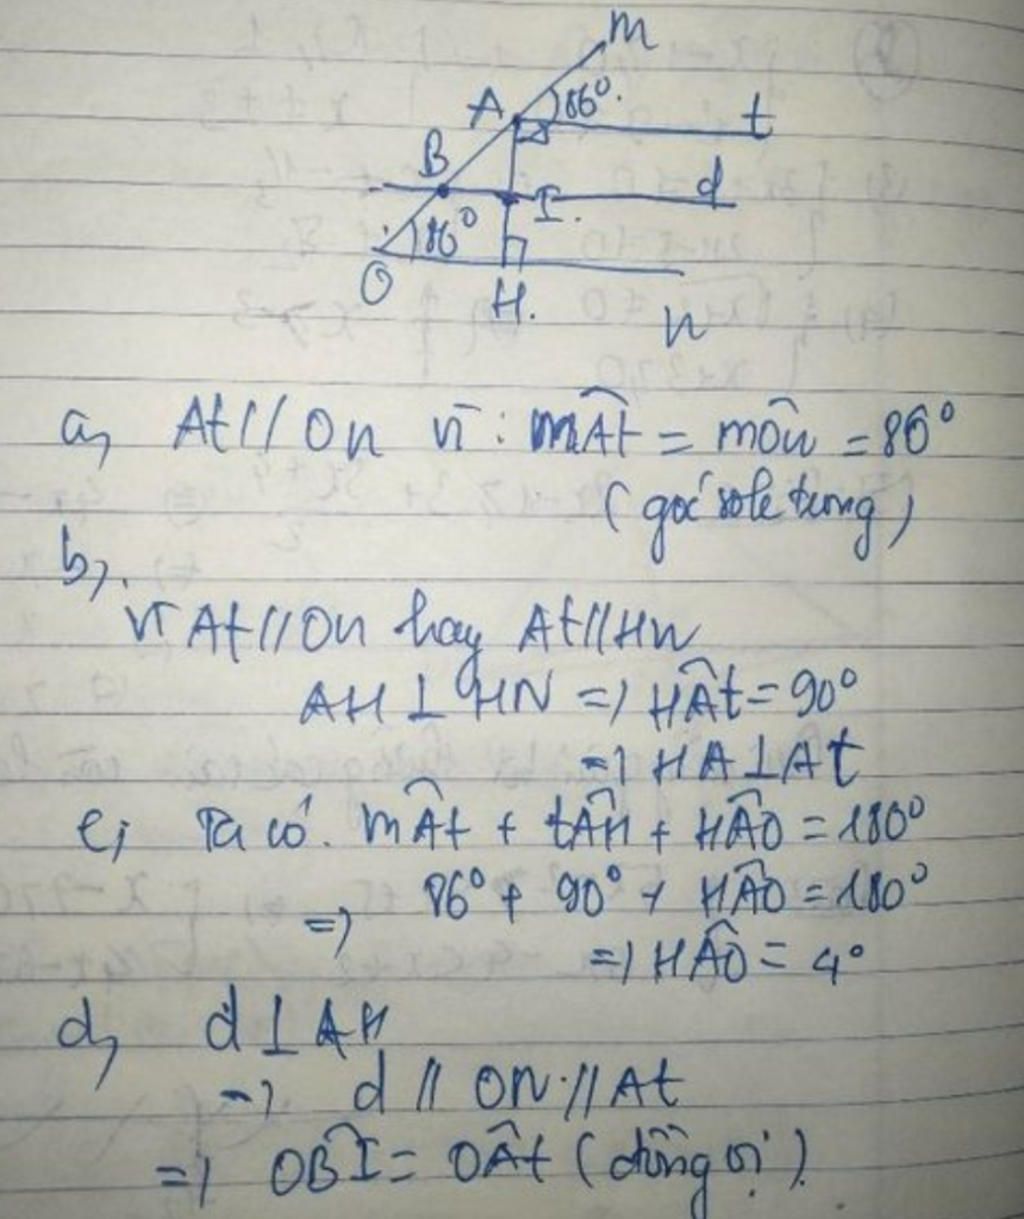 m
A 86°.
t
B
d
I.
86°
O
H.
n
a, At // On vì : mÂt = mÔn = 86°
(góc sole trong)
b,.
Vì At // On hay At // Hn
AH ⊥ HN => HÂt = 90°
=> HA ⊥ At
c; Ta có. mÂt + tÂH + HÂO = 180°
=> 86° + 90° + HÂO = 180°
=> HÂO = 4°
d, d ⊥ AH
=> d // ON // At
=> OB̂I = OÂt (đồng vị).